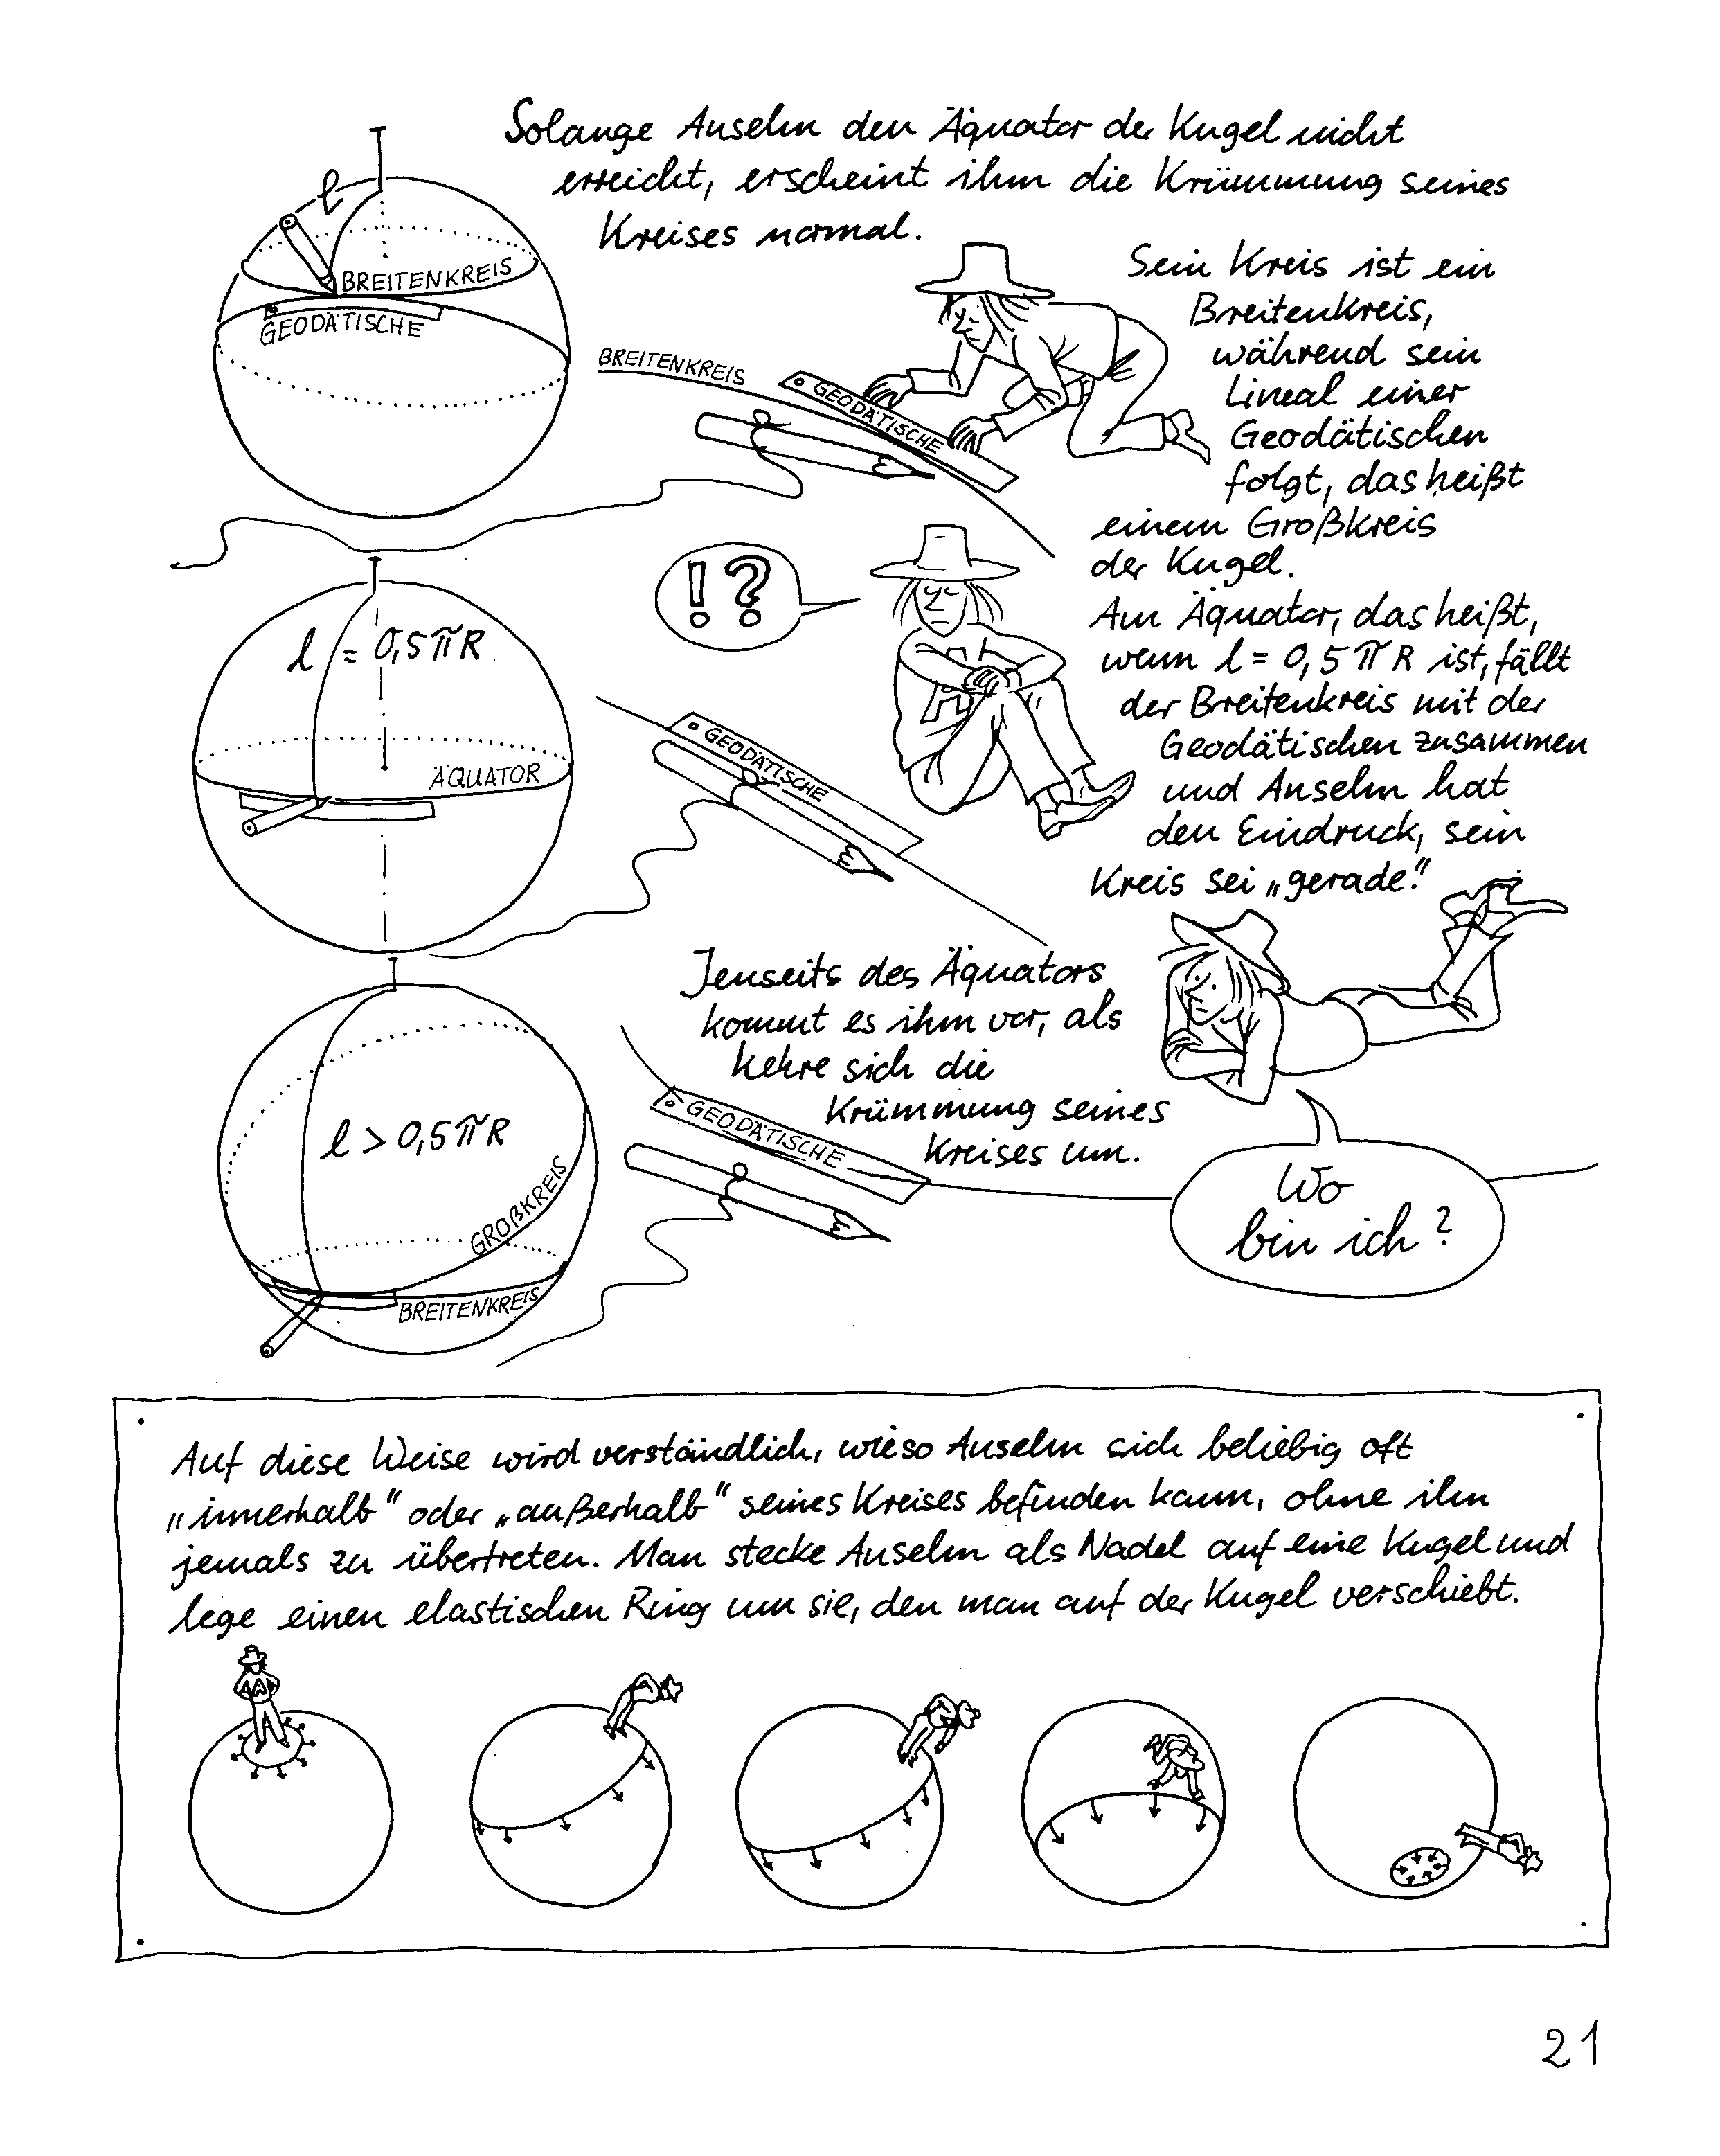 Solange Anselm den Äquator der Kugel nicht
erreicht, erscheint ihm die Krümmung seines
Kreises normal.
l
BREITENKREIS
GEODÄTISCHE
BREITENKREIS
GEODÄTISCHE
Sein Kreis ist ein
Breitenkreis,
während sein
Lineal einer
Geodätischen
folgt, das heißt
einem Großkreis
der Kugel.
!?
l = 0,5 π R
ÄQUATOR
GEODÄTISCHE
Am Äquator, das heißt,
wenn l = 0,5 π R ist, fällt
der Breitenkreis mit der
Geodätischen zusammen
und Anselm hat
den Eindruck, sein
Kreis sei „gerade."
Jenseits des Äquators
kommt es ihm vor, als
kehre sich die
Krümmung seines
Kreises um.
l > 0,5 π R
GROßKREIS
BREITENKREIS
GEODÄTISCHE
Wo
bin ich?
Auf diese Weise wird verständlich, wieso Anselm sich beliebig oft
„innerhalb" oder „außerhalb" seines Kreises befinden kann, ohne ihn
jemals zu übertreten. Man stecke Anselm als Nadel auf eine Kugel und
lege einen elastischen Ring um sie, den man auf der Kugel verschiebt.
21